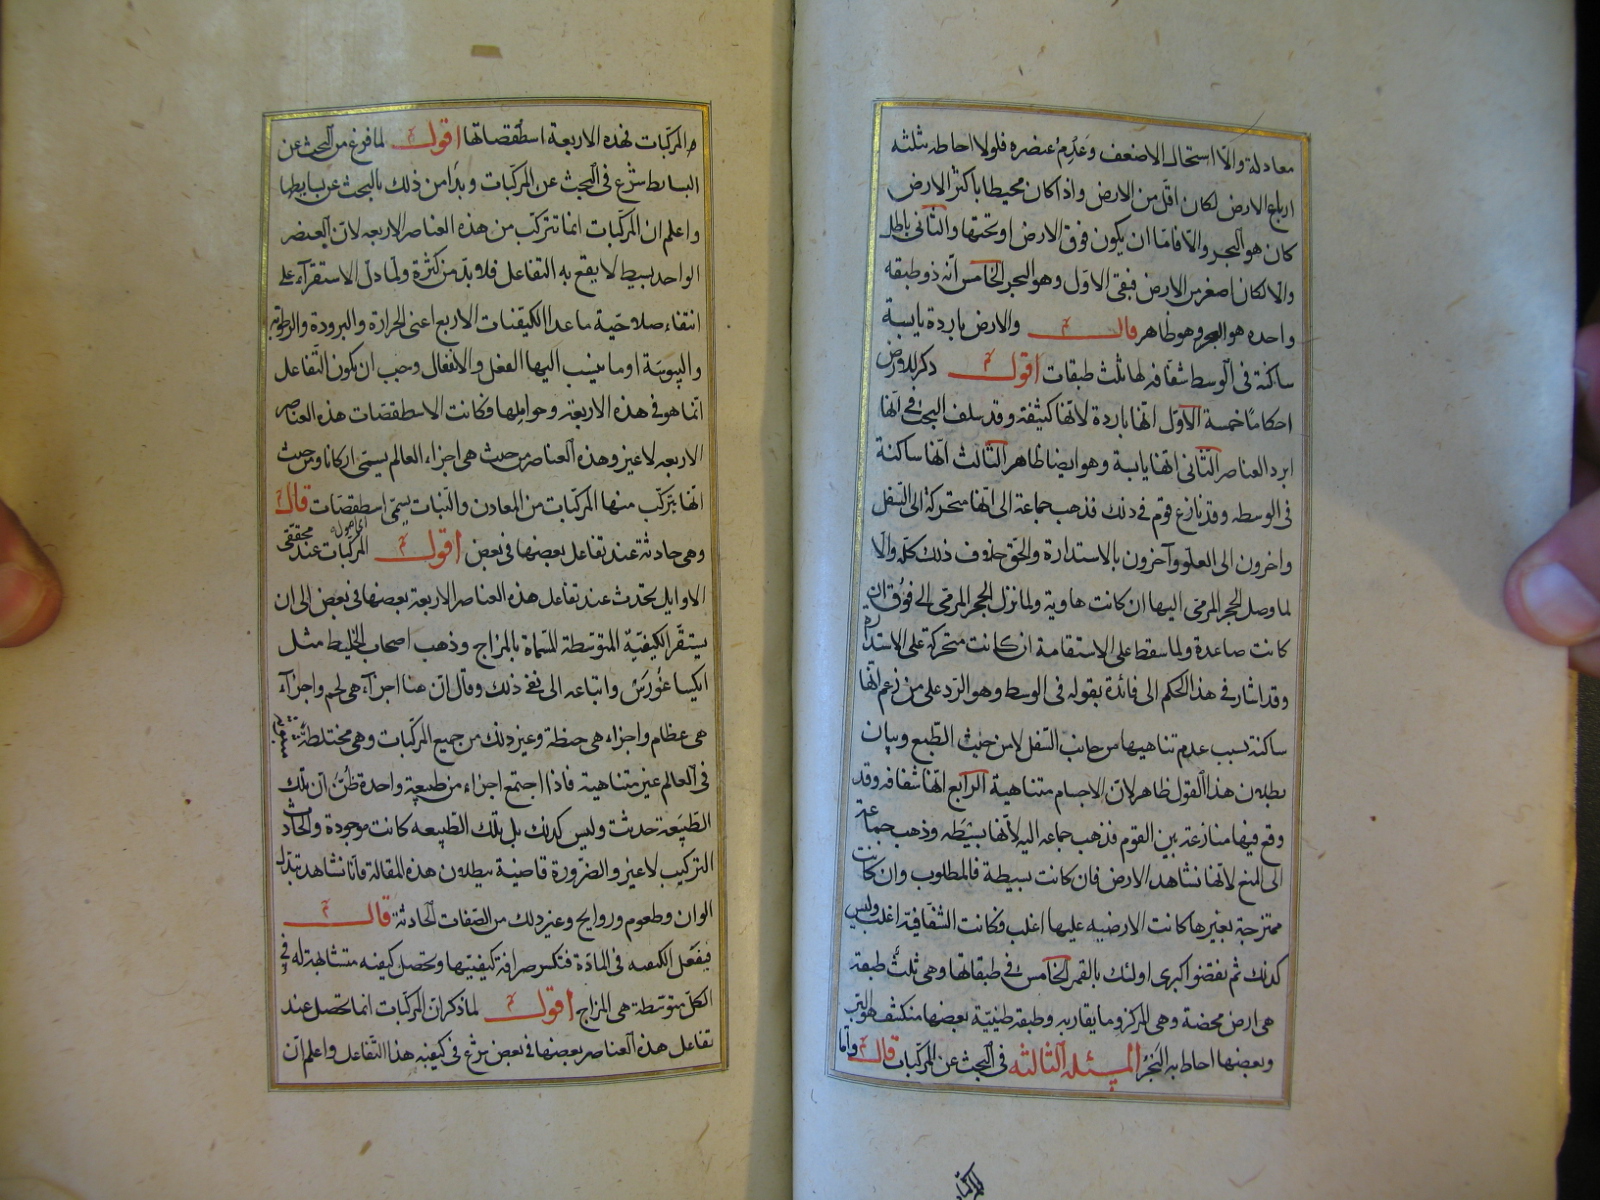 معادلة والا استحال الاضعف وعدم عنصره فلولا احاطه بثلثه
ارباع الارض لكان اقل من الارض واذا كان محيطا باكثر الارض
كان هو البحر والا فاما ان يكون فوق الارض او تحتها والثانى باطل
والا لكان اصغر من الارض فبقى الاول وهو البحر الخامس انه ذو طبقه
واحده هو البحر وهو ظاهر قال والارض باردة يابسة
ساكنة فى الوسط شفافه لها ثلث طبقات اقول ذكر للارض
احكاما خمسة الاول انها باردة لانها كثيفة وقد سلف البحث فى انها
ابرد العناصر الثانى انها يابسة وهو ايضا ظاهر الثالث انها ساكنة
فى الوسط وقد نازع قوم فى ذلك فذهب جماعة الى انها متحركة الى السفل
واخرون الى العلو وآخرون بالاستدارة والحق خلاف ذلك كله والا
لما وصل الحجر المرمى اليها ان كانت هاوية ولما نزل الحجر المرمى الى فوق ان
كانت صاعدة ولما سقط على الاستقامة ان كانت متحركة على الاستدارة
وقد اشار فى هذا الحكم الى فائدة بقوله فى الوسط وهو الرد على من زعم انها
ساكنة بسبب عدم تناهيها من جانب السفل لا من حيث الطبع وبيان
بطلان هذا القول ظاهر لان الاجسام متناهية الرابع انها شفافه وقد
وقع فيها منازعة بين القوم فذهب جماعه اليه لانها بسيطه وذهب جماعة
الى المنع لانها نشاهد الارض فان كانت بسيطة فالمطلوب وان كانت
ممتزجة بغيرها كانت الارضيه عليها اغلب فكانت الشفافية اغلب وليس
كذلك ثم نقضوا كبرى اولئك بالقمر الخامس فى طبقاتها وهى ثلث طبقة
هى ارض محضة وهى المركز وما يقاربه وطبقة طينية بعضها منكشف هو البر
وبعضها احاط به البحر المسئلة الثالثة فى البحث عن المركبات قال واما
المركبات فهذه الاربعة اسطقصاتها اقول لما فرغ من البحث عن
البسايط شرع فى البحث عن المركبات وبدأ من ذلك بالبحث عن بسايطها
واعلم ان المركبات انما تتركب من هذه العناصر الاربعه لان العنصر
الواحد بسيط لا يقع به التفاعل فلا بد من كثرة ولما دل الاستقرآء على
انتفاء صلاحية ما عدا الكيفيات الاربع اعنى الحرارة والبرودة والرطوبة
واليبوسة او ما ينسب اليها الفعل والانفعال وجب ان يكون التفاعل
انما هو فى هذه الاربعة وحواملها فكانت الاسطقصات هذه العناصر
الاربعه لا غير وهذه العناصر من حيث هى اجزاء العالم يسمى اركانا ومن حيث
انها يتركب منها المركبات من المعادن والنبات يسمى اسطقصات قال
وهى حادثة عند تفاعل بعضها فى بعض اقول المركبات عند محققى
الاوايل تحدث عند تفاعل هذه العناصر الاربعة بعضها فى بعض الى ان
يستقر الكيفية المتوسطة المسماة بالمزاج وذهب اصحاب الخليط مثل
انكسا غورس واتباعه الى نفى ذلك وقال ان هنا اجزآء هى لحم واجزآء
هى عظام واجزاء هى حنطة وغير ذلك من جميع المركبات وهى مختلطة مبثوثة
فى العالم غير متناهية فاذا اجتمع اجزاء من طبيعة واحدة ظن ان تلك
الطبيعة حدثت وليس كذلك بل تلك الطبيعه كانت موجودة والحادث
التركيب لا غير والضرورة قاضية ببطلان هذه المقالة فانا نشاهد تبدل
الوان وطعوم وروايح وغير ذلك من الصفات الحادثة قال
فيفعل الكيفيه فى المادة فتكسر صرافة كيفيتها وتحصل كيفيه متشابهة فى
الكل متوسطة هى المزاج اقول لما ذكر ان المركبات انما تحصل عند
تفاعل هذه العناصر بعضها فى بعض شرع فى كيفيه هذا التفاعل واعلم ان